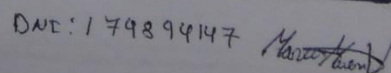 DNI: 179894147